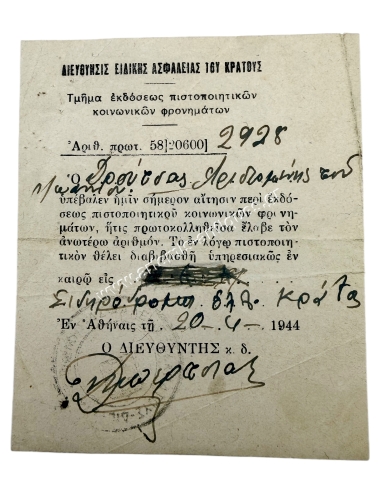 ΔΙΕΥΘΥΝΣΙΣ ΕΙΔΙΚΗΣ ΑΣΦΑΛΕΙΑΣ ΤΟΥ ΚΡΑΤΟΥΣ
Τμῆμα ἐκδόσεως πιστοποιητικῶν
κοινωνικῶν φρονημάτων
Ἀριθ. πρωτ. 58]20600] 2928
Ὁ Δρόσσας Ἀριστομένης τοῦ
Ἰωάννου
ὑπέβαλεν ἡμῖν σήμερον αἴτησιν περὶ ἐκδό-
σεως πιστοποιητικοῦ κοινωνικῶν φρονη-
μάτων, ἥτις πρωτοκολληθεῖσα ἔλαβε τὸν
ἀνωτέρω ἀριθμόν. Τὸ ἐν λόγῳ πιστοποιη-
τικὸν θέλει διαβιβασθῆ ὑπηρεσιακῶς ἐν
καιρῷ εἰς
Σιδηροδρομ. Ἑλλ. Κράτος
Ἐν Ἀθήναις τῇ 20-4-1944
Ὁ ΔΙΕΥΘΥΝΤΗΣ κ. δ.